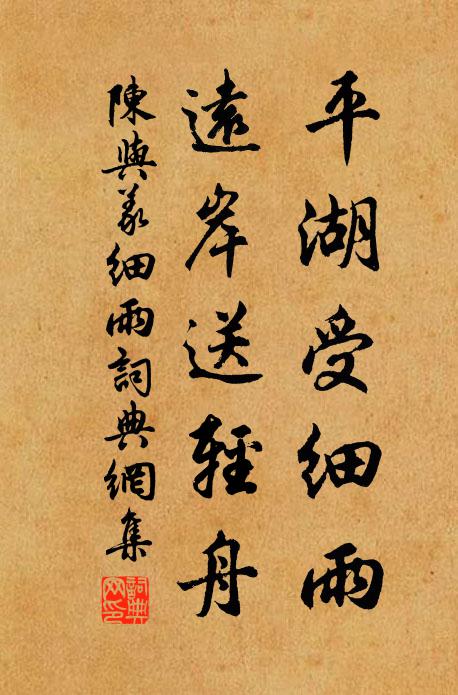 平湖受細雨
遠岸送輕舟
陳與義細雨詞典網集
詞典網印